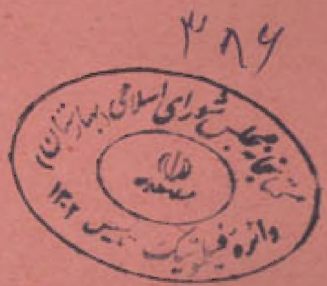 ۳۸۶
کتابخانه مجلس شورای اسلامی (بهارستان)
دائره فیلاتلیک تاسیس ۱۳۰۲